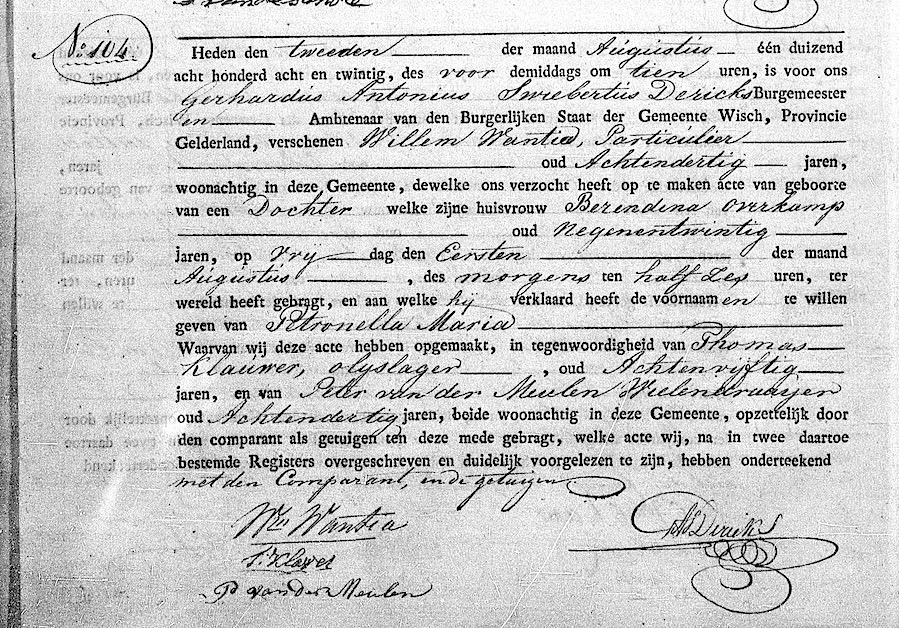 No. 104
Heden den tweeden der maand Augustus één duizend
acht honderd acht en twintig, des voor demiddags om tien uren, is voor ons
Gerhardus Antonius Swiebertus Dericks Burgemeester
en Ambtenaar van den Burgerlijken Staat der Gemeente Wisch, Provincie
Gelderland, verschenen Willem Wantia, Particulier
oud Achtendertig jaren,
woonachtig in deze Gemeente, dewelke ons verzocht heeft op te maken acte van geboorte
van een Dochter welke zijne huisvrouw Berendina Overkamp
oud Negenentwintig
jaren, op Vry dag den Eersten der maand
Augustus, des morgens ten half Zes uren, ter
wereld heeft gebragt, en aan welke hy verklaard heeft de voornaamen te willen
geven van Petronella Maria
Waarvan wij deze acte hebben opgemaakt, in tegenwoordigheid van Thomas
Klauwer, olyslager, oud Achtenvijftig
jaren, en van Peter van der Meulen Wielendraaijer
oud Achtendertig jaren, beide woonachtig in deze Gemeente, opzettelijk door
den comparant als getuigen ten deze mede gebragt, welke acte wij, na in twee daartoe
bestemde Registers overgeschreven en duidelijk voorgelezen te zijn, hebben onderteekend
met den Comparant, en de getuigen
Wm Wantia
T. Klawer
P van der Meulen
Dericks